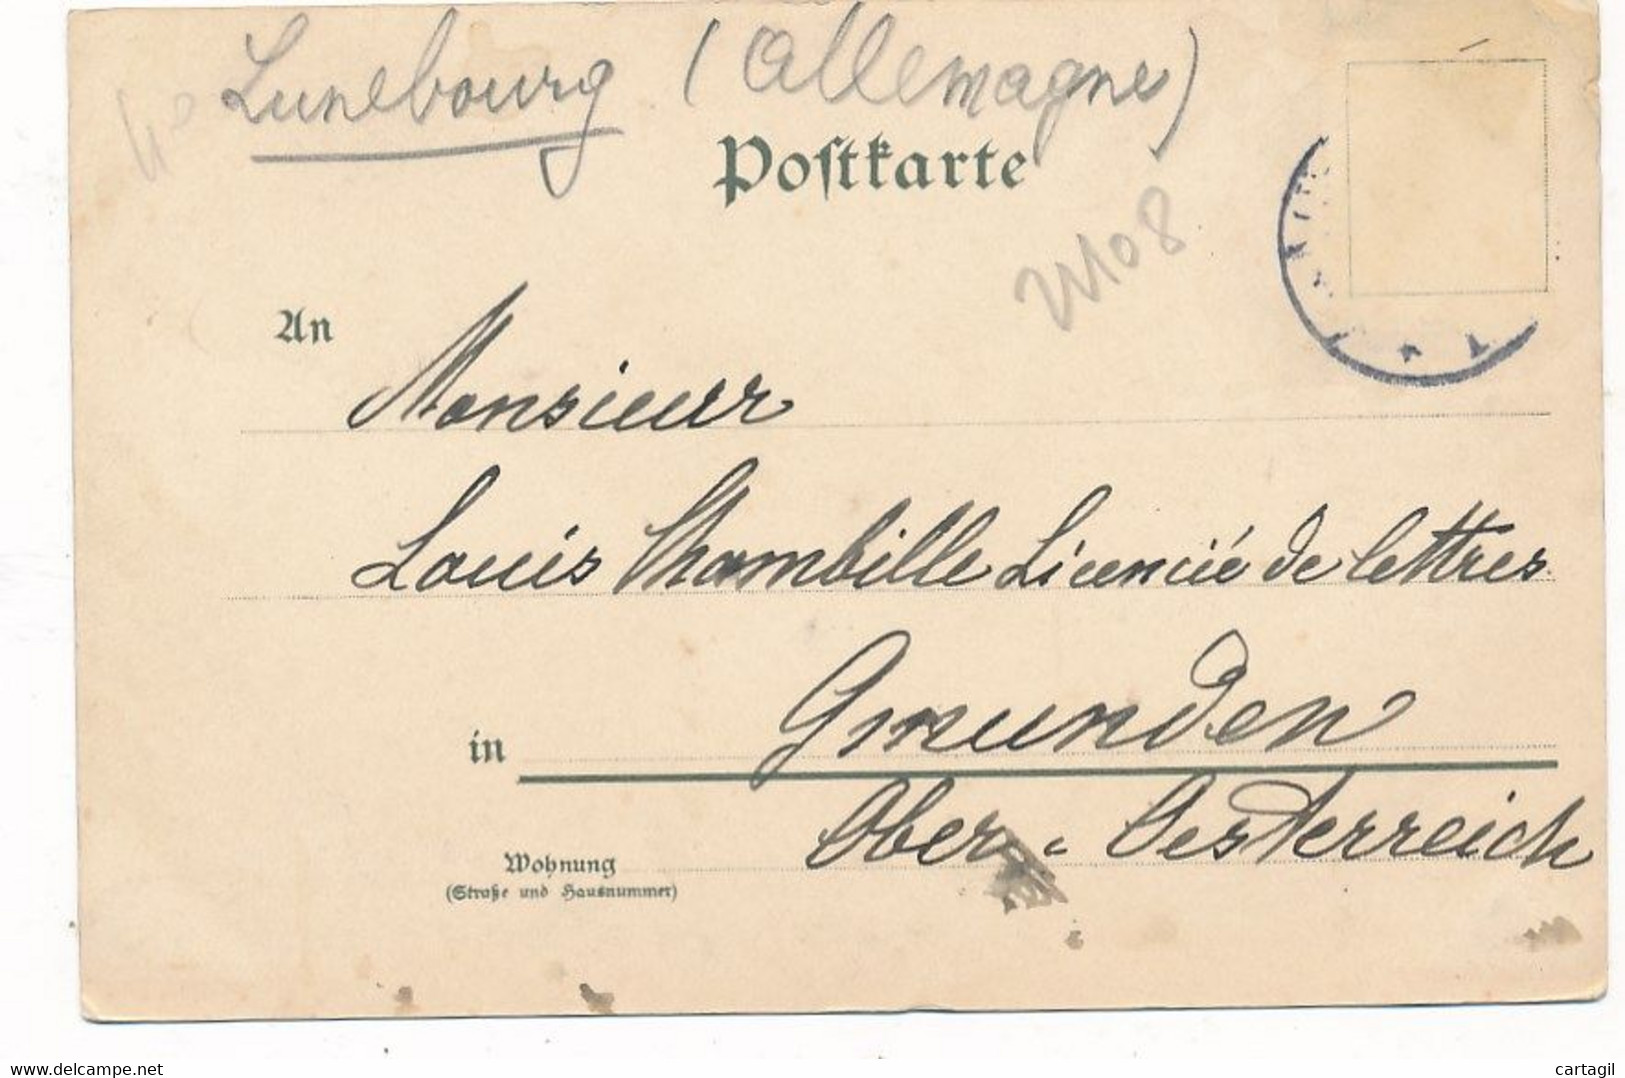 Lunebourg (Allemagne)
Postkarte
An
Monsieur
Louis Chambille Licencié de lettres
in Gmunden
Ober-Oesterreich
Wohnung
(Straße und Hausnummer)
www.delcampe.net
cartagil